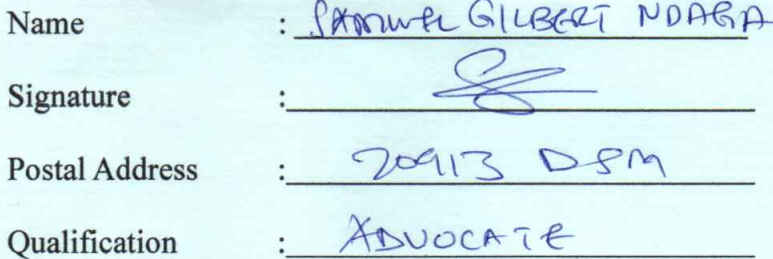 Name : SAMWEL GILBERT NDAGA
Signature :
Postal Address : 20913 DSM
Qualification : ADVOCATE